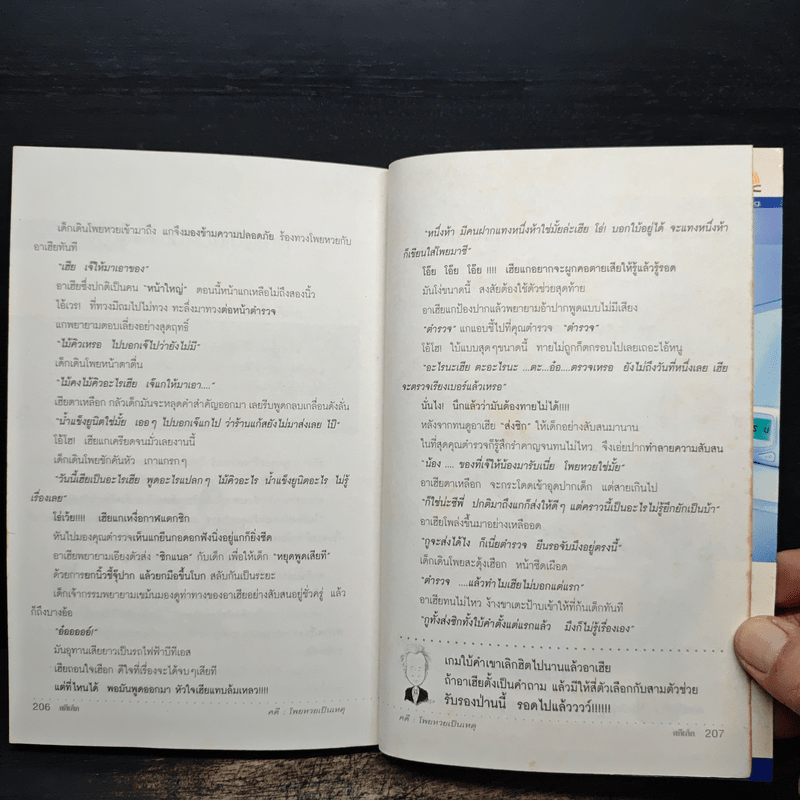 เด็กเดินโพยหวยเข้ามาถึง แกจึงมองข้ามความปลอดภัย ร้องทวงโพยหวยกับ
อาเฮียทันที
"เฮีย เจ๊ให้มาเอาของ"
อาเฮียซึ่งปกติเป็นคน "หน้าใหญ่" ตอนนี้หน้าแกเหลือไม่ถึงสองนิ้ว
ไอ้เวร! ที่ทวงมีถมไปไม่ทวง ทะลึ่งมาทวงต่อหน้าตำรวจ
แกพยายามตอบเลี่ยงอย่างสุดฤทธิ์
"ไม้คิวเหรอ ไปบอกเจ๊ไปว่ายังไม่มี"
เด็กเดินโพยหน้าตาตื่น
"ไม้คงไม้คิวอะไรเฮีย เจ๊แกให้มาเอา...."
เฮียตาเหลือก กลัวเด็กมันจะหลุดคำสำคัญออกมา เลยรีบพูดกลบเกลื่อนดังลั่น
"น้ำแข็งยูนิตใช่มั้ย เออๆ ไปบอกเจ๊แกไป ว่าร้านแก้สยังไม่มาส่งเลย ไป๊"
โอ้โฮ! เฮียแกเครียดจนมั่วเลยงานนี้
เด็กเดินโพยชักคันหัว เกาแกรกๆ
"วันนี้เฮียเป็นอะไรเฮีย พูดอะไรแปลกๆ ไม้คิวอะไร น้ำแข็งยูนิตอะไร ไม่รู้
เรื่องเลย"
โอ๋เว้ย!!!! เฮียแกเหงื่อกาฬแตกซิก
หันไปมองคุณตำรวจเห็นแกยืนกอดอกฟังนิ่งอยู่แกก็ยิ่งซีด
อาเฮียพยายามเอียงตัวส่ง "ซิกแนล" กับเด็ก เพื่อให้เด็ก "หยุดพูดเสียที"
ด้วยการยกนิ้วชี้จุ๊ปาก แล้วยกมือขึ้นโบก สลับกันเป็นระยะ
เด็กเจ้ากรรมพยายามเขม้นมองดูท่าทางของอาเฮียอย่างสับสนอยู่ชั่วครู่ แล้ว
ก็ถึงบางอ้อ
"อ๋ออออออ์!"
มันอุทานเสียยาวเป็นรถไฟฟ้าบีทีเอส
เฮียถอนใจเฮือก ดีใจที่เรื่องจะได้จบๆเสียที
แต่ที่ไหนได้ พอมันพูดออกมา หัวใจเฮียแทบล้มเหลว!!!!
206
คดี : โพยหวยเป็นเหตุ
"หนึ่งห้า มีคนฝากแทงหนึ่งห้าใช่มั้ยล่ะเฮีย โธ่! บอกใบ้อยู่ได้ จะแทงหนึ่งห้า
ก็เขียนใส่โพยมาซี"
โอ๊ย โอ๊ย โอ๊ย !!!! เฮียแกอยากจะผูกคอตายเสียให้รู้แล้วรู้รอด
มันโง่ขนาดนี้ สงสัยต้องใช้ตัวช่วยสุดท้าย
อาเฮียแกป้องปากแล้วพยายามอ้าปากพูดแบบไม่มีเสียง
"ตำรวจ" แกแอบชี้ไปที่คุณตำรวจ "ตำรวจ"
โอ้โฮ! ใบ้แบบสุดๆขนาดนี้ ทายไม่ถูกก็ตกรอบไปเลยเถอะไอ้หนู
"อะไรนะเฮีย ตะอะไรนะ ...ตะ...อ๋อ....ตรวจเหรอ ยังไม่ถึงวันที่หนึ่งเลย เฮีย
จะตรวจเรียงเบอร์แล้วเหรอ"
นั่นไง! นึกแล้วว่ามันต้องทายไม่ได้!!!!
หลังจากทนดูอาเฮีย "ส่งซิก" ให้เด็กอย่างสับสนมานาน
ในที่สุดคุณตำรวจก็รู้สึกรำคาญจนทนไม่ไหว จึงเอ่ยปากทำลายความสับสน
"น้อง .... ของที่เจ๊ให้น้องมารับเนี่ย โพยหวยใช่มั้ย"
อาเฮียตาเหลือก จะกระโดดเข้าอุดปากเด็ก แต่สายเกินไป
"ก็ใช่น่ะซีพี่ ปกติมาถึงแกก็ส่งให้ดีๆ แต่คราวนี้เป็นอะไรไม่รู้ยึกยักเป็นบ้า"
อาเฮียโพล่งขึ้นมาอย่างเหลืออด
"กูจะส่งได้ไง ก็เนี่ยตำรวจ ยืนรอจับมึงอยู่ตรงนี้"
เด็กเดินโพยสะดุ้งเฮือก หน้าซีดเผือด
"ตำรวจ ....แล้วทำไมเฮียไม่บอกแต่แรก"
อาเฮียทนไม่ไหว ง้างขาเตะป้าบเข้าให้ที่ก้นเด็กทันที
"กูทั้งส่งซิกทั้งใบ้คำตั้งแต่แรกแล้ว มึงก็ไม่รู้เรื่องเอง"
เกมใบ้คำเขาเลิกฮิตไปนานแล้วอาเฮีย
ถ้าอาเฮียตั้งเป็นคำถาม แล้วมีให้สี่ตัวเลือกกับสามตัวช่วย
รับรองป่านนี้ รอดไปแล้ววววว์!!!!!!
คดี : โพยหวยเป็นเหตุ
207